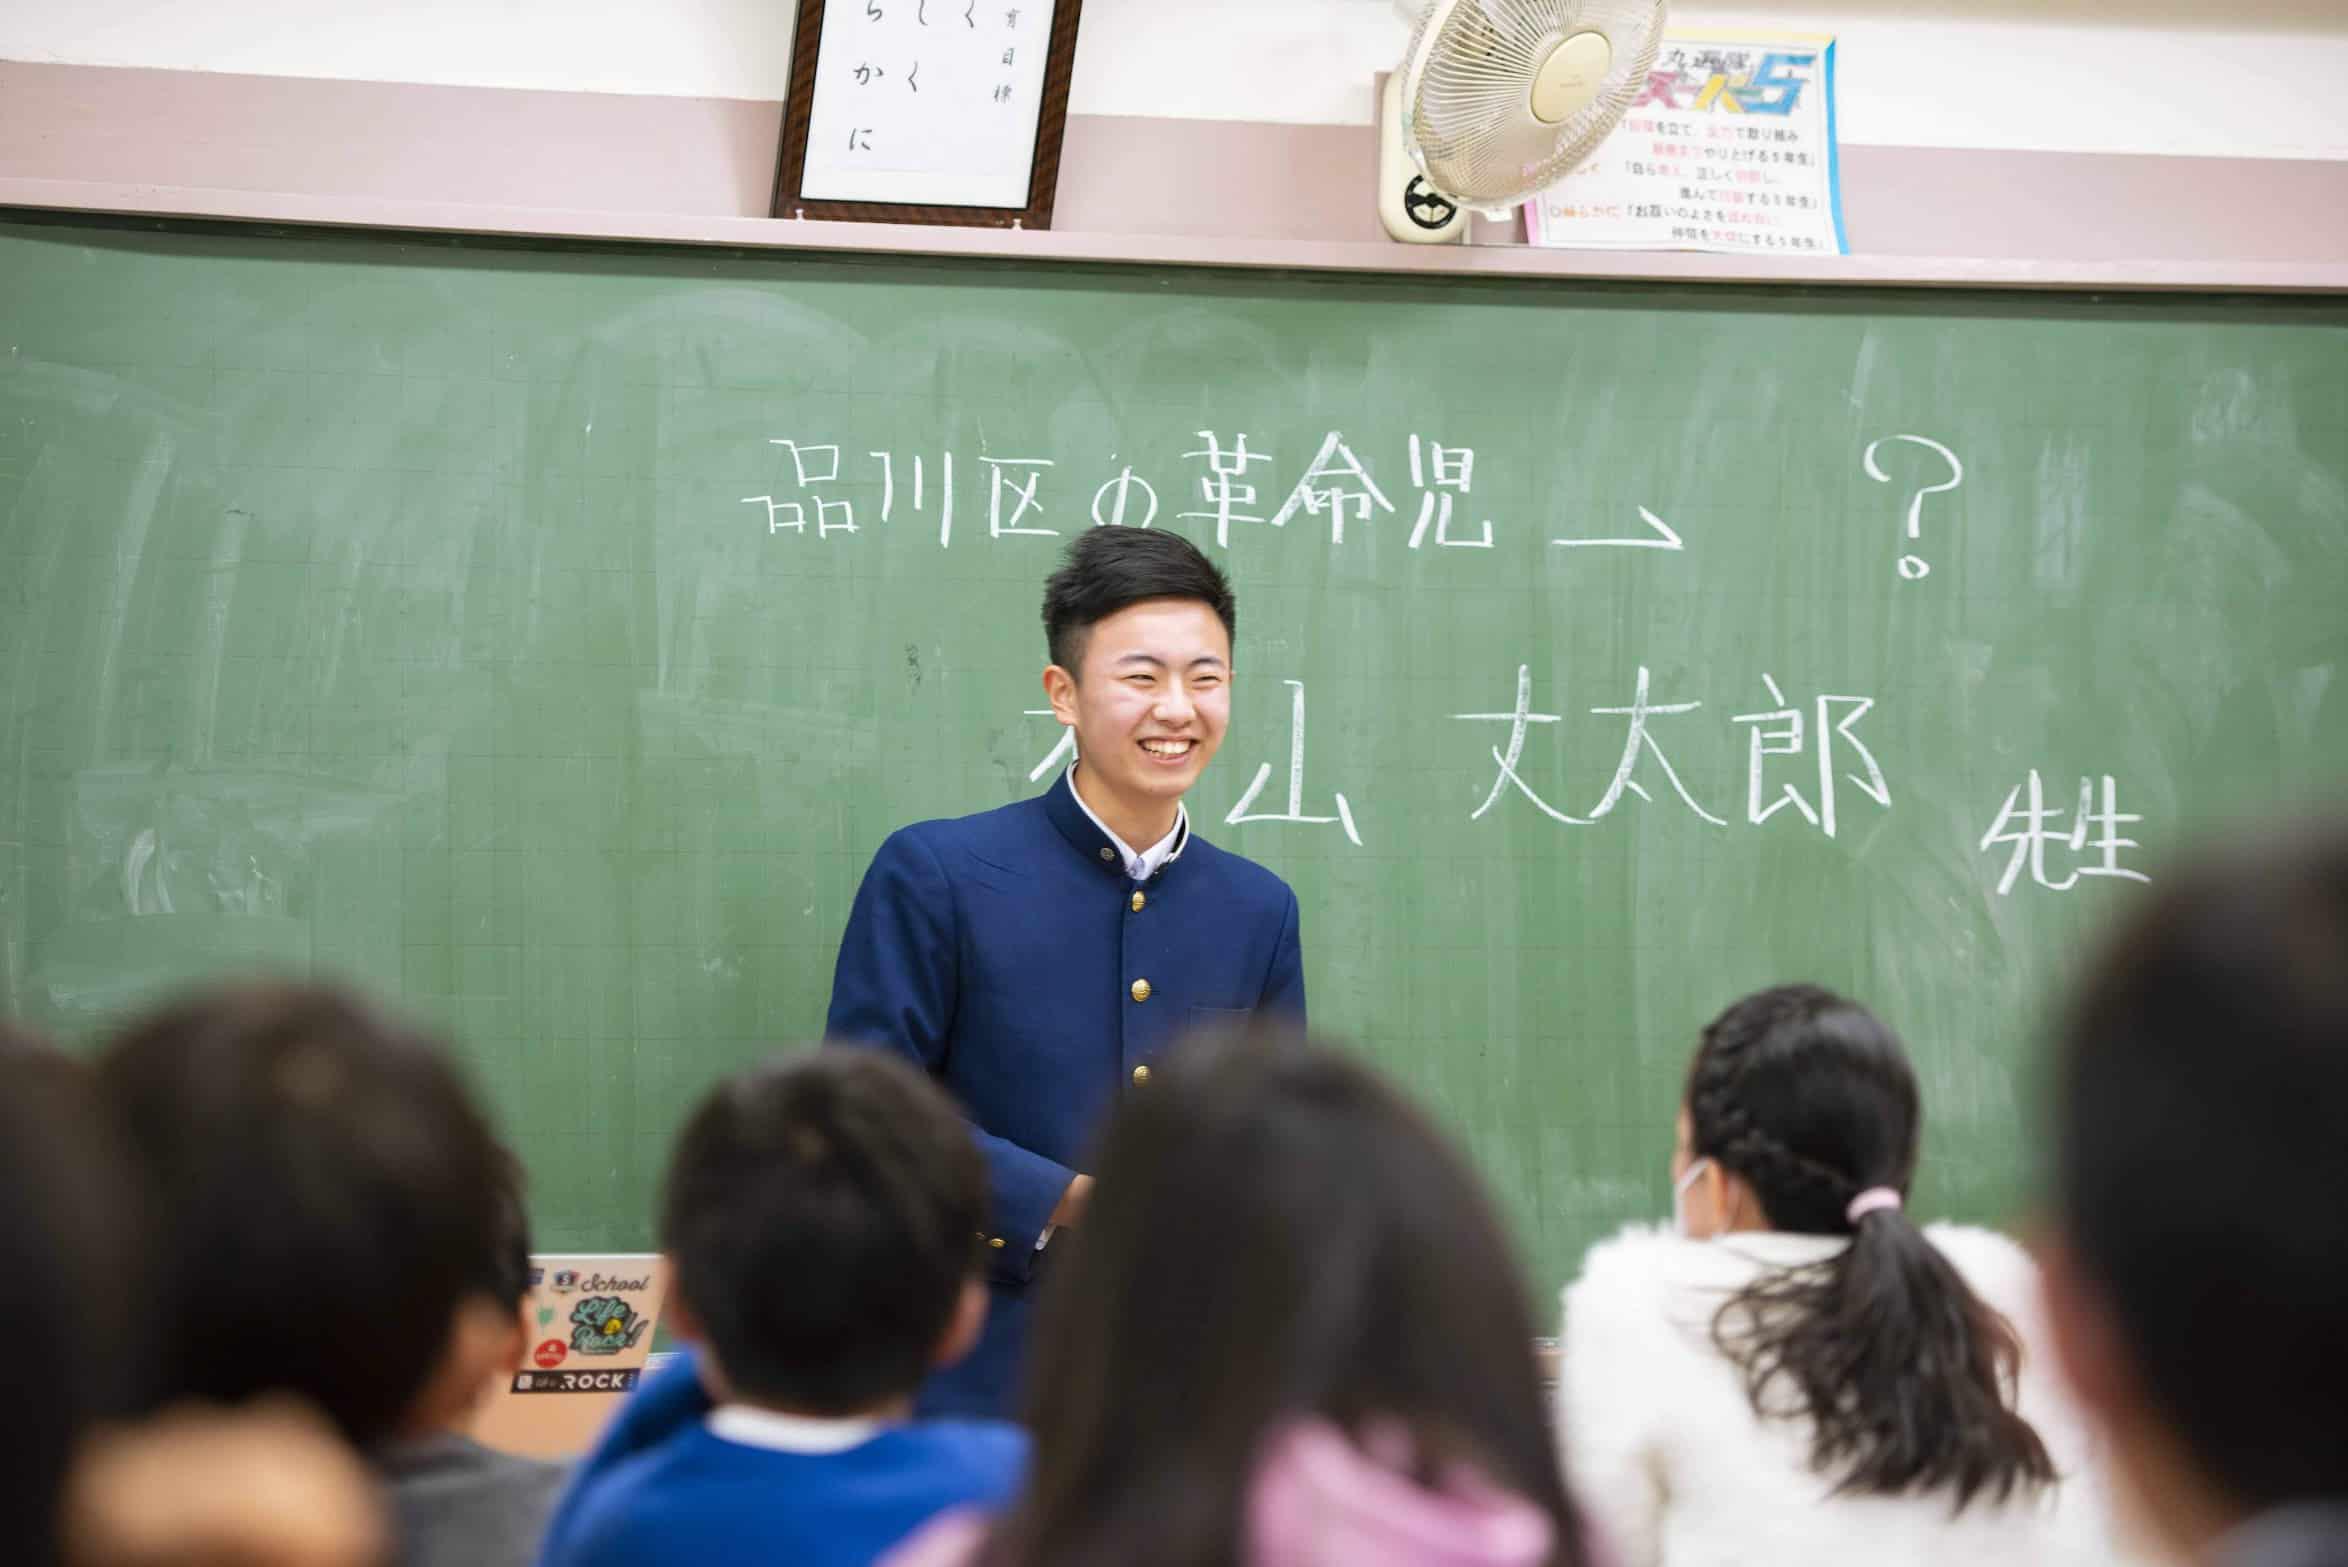 育目標
く
しく
らかに
スーパー5
「目標を立て、全力で取り組み
最後までやりとげる5年生」
く 「自ら考え、正しく判断し、
進んで行動する5年生」
「お互いのよさを認め合い、
を大切にする5年生」
品川区の革命児 → ?
山 丈太郎 先生
School
Life is
Rock!
ROCK